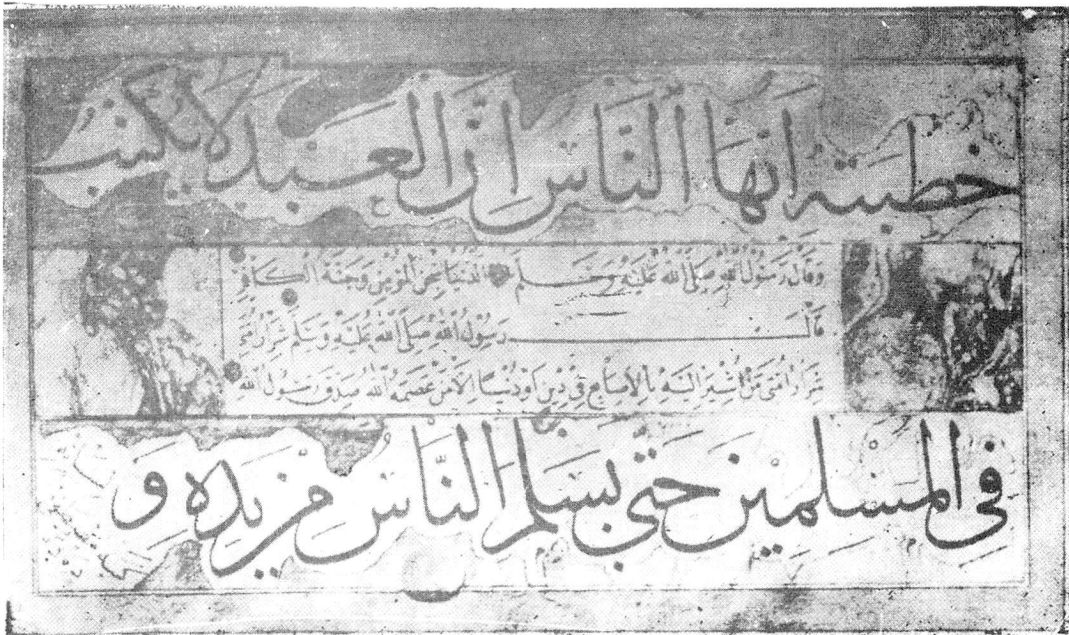 خطبته ايها الناس ان العبد لا يكتب
وقال رسول الله صلى الله عليه وسلم الدنيا سجن المؤمن وجنة الكافر
قال رسول الله صلى الله عليه وسلم شرار
شرار امتى من اليه بالاصابع فى دين او دنيا الا من عصمه الله صدق رسول الله
فى المسلمين حتى يسلم الناس من يده و